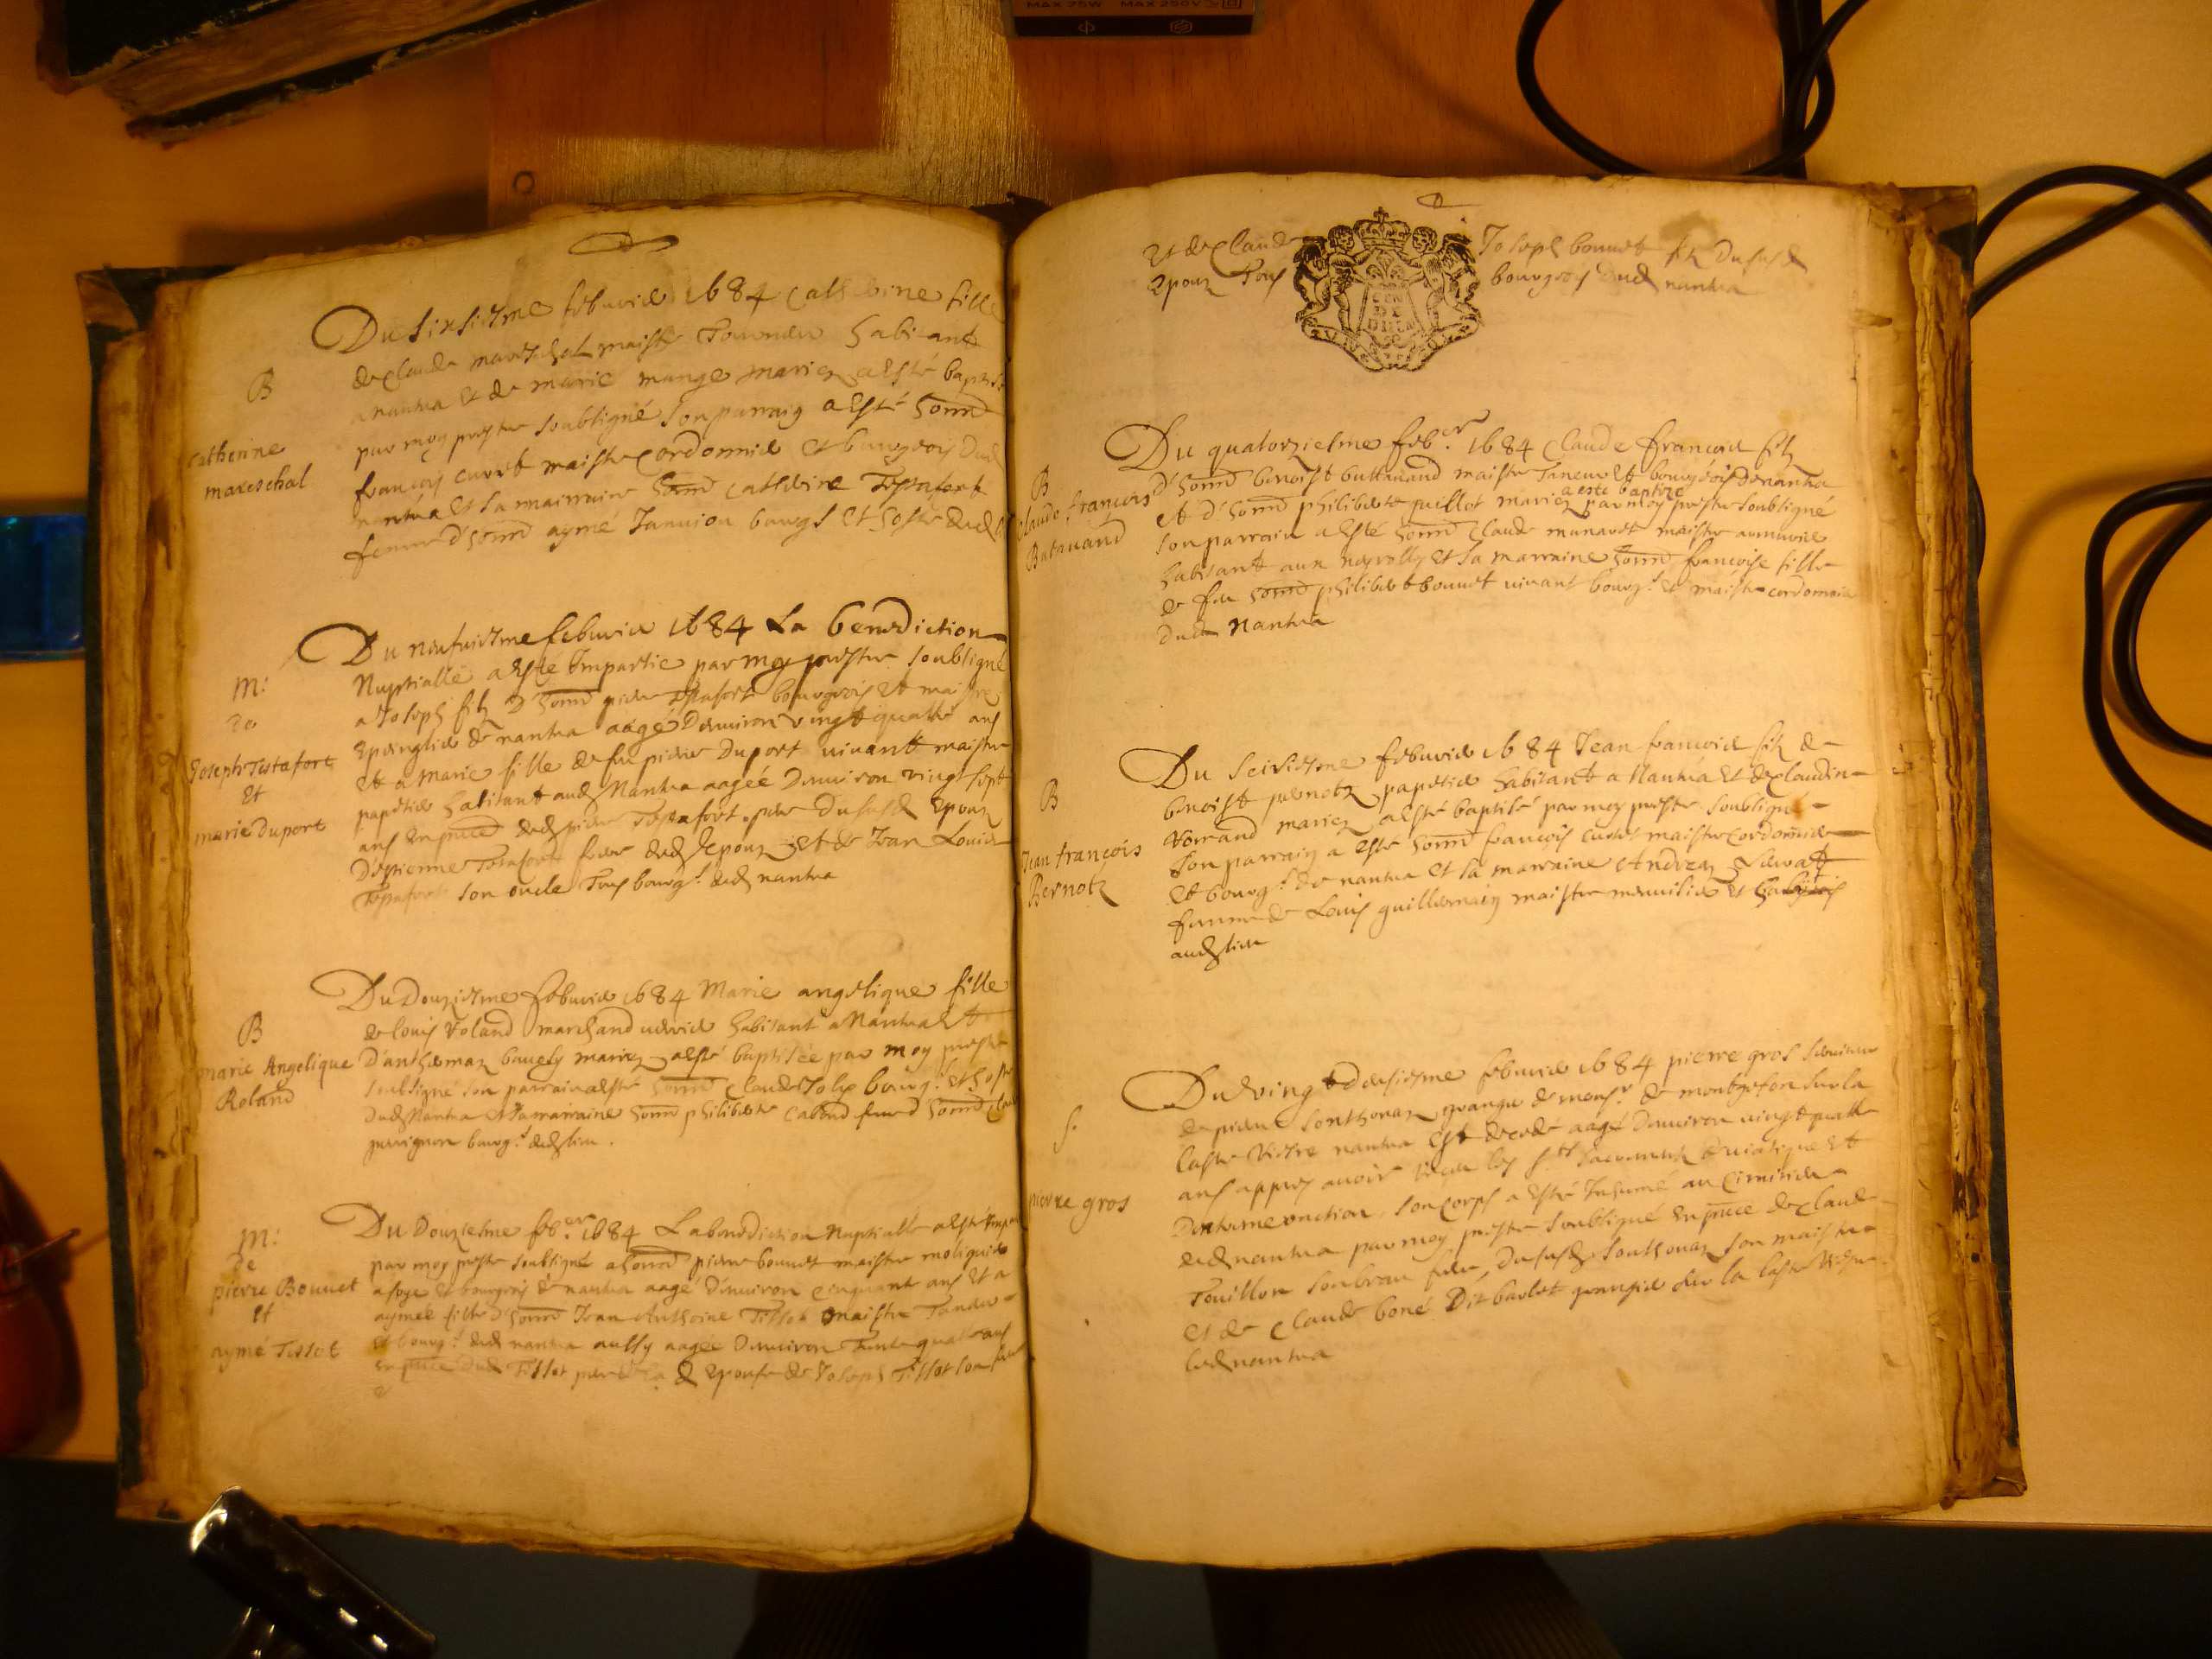 MAX 75W MAX 250V
B
Catherine
mareschal
Du sixsiesme febvrier 1684 Catherine fille
de Claude mareschal maistre Tanneur habitant
a nantua et de marie mange mariez a esté baptisée
par moy prestre soubsigné son parrain a esté honn
françois curvet maistre Cordonnier et bourgeois dud
nantua et sa marraine honn Catherine Testafort
femme d'honn aymé Janvion bourg s et hoste dud
M:
de
Joseph Testafort
Et
marie duport
Du neufviesme febvrier 1684 La benediction
Nuptialle a esté Impartie par moy prestre soubsigné
a Joseph filz d'honn pierre Testafort bourgeois et maistre
Epinglier de nantua aagé d'environ vingt quatre ans
et a marie fille de feu pierre Duport vivant maistre
papetier habitant aud Nantua aagée d'environ vingt sept
ans en pnce dud pierre Testafort pere du susd Epoux
D'estienne Testafort frere dud Epoux et de Jean Louis
Testafort son oncle Tous bourg s dud nantua
B
marie Angelique
Roland
Du Douziesme febvrier 1684 Marie angelique fille
de louis Roland marchand habitant a Nantua et
D'anthemaz mariez a esté baptisée par moy prestre
soubsigné son parrain a esté honn Claude Joly bourg s et hoste
dud Nantua et sa marraine honn philiberte Cabond femme d'honn
bourg s dud lieu.
M:
de
pierre Bouvet
Et
aymé Tissot
Du Douziesme feb.er 1684 La benediction Nuptialle a esté
par moy prestre soubsigné a honn pierre bouvet maistre
et bourgeois de nantua aagé d'environ cinquante ans et a
aymée fille d'honn Jean Anthoine Tissot maistre Tanneur
et bourg s dud nantua aussy aagée d'environ Trente quatre ans
en pnce dud Tissot pere de lad Epouse de Joseph Tissot son frere
et de Claude Joseph bouvet filz du susd
Epoux Tous bourgeois dud nantua
B
Claude françois
Batavand
Du quatorziesme feb.er 1684 Claude françois filz
d'honn benoist maistre Taneur et bourgeois de nantua
et d'honn philiberte guillot mariez a esté baptizé par moy prestre soubsigné
son parrain a esté honn Claude munaret maistre
habitant aux neyrolles et sa marraine honn françoise fille
de feu honn philibert bouvet vivant bourg s et maistre cordonnier
dud Nantua
B
Jean françois
Bernotz
Du seisiesme febvrier 1684 Jean françois filz de
benoist papetier habitant a Nantua et de Claudine
mariez a esté baptisé par moy prestre soubsigné
son parrain a esté honn françois maistre Cordonnier
et bourg s de nantua et sa marraine Andreaz
femme de Louis guillermin maistre menuisier et
aud lieu
S.
pierre gros
Du vingt deusiesme febvrier 1684 pierre gros serviteur
de pierre Sonthonaz granger de mons.r de montgefon sur la
est decedé aagé d'environ vingt quatre
ans appres avoir reçeu les s.ts sacrements de viatique et
D'extreme onction, son corps a esté Inhumé au Cimitiere
dud nantua par moy prestre soubsigné en pnce de Claude
Touillon son beau frere, du susd Sonthonaz son maistre
et de Claude boné Dit barlet granger sur la
led nantua